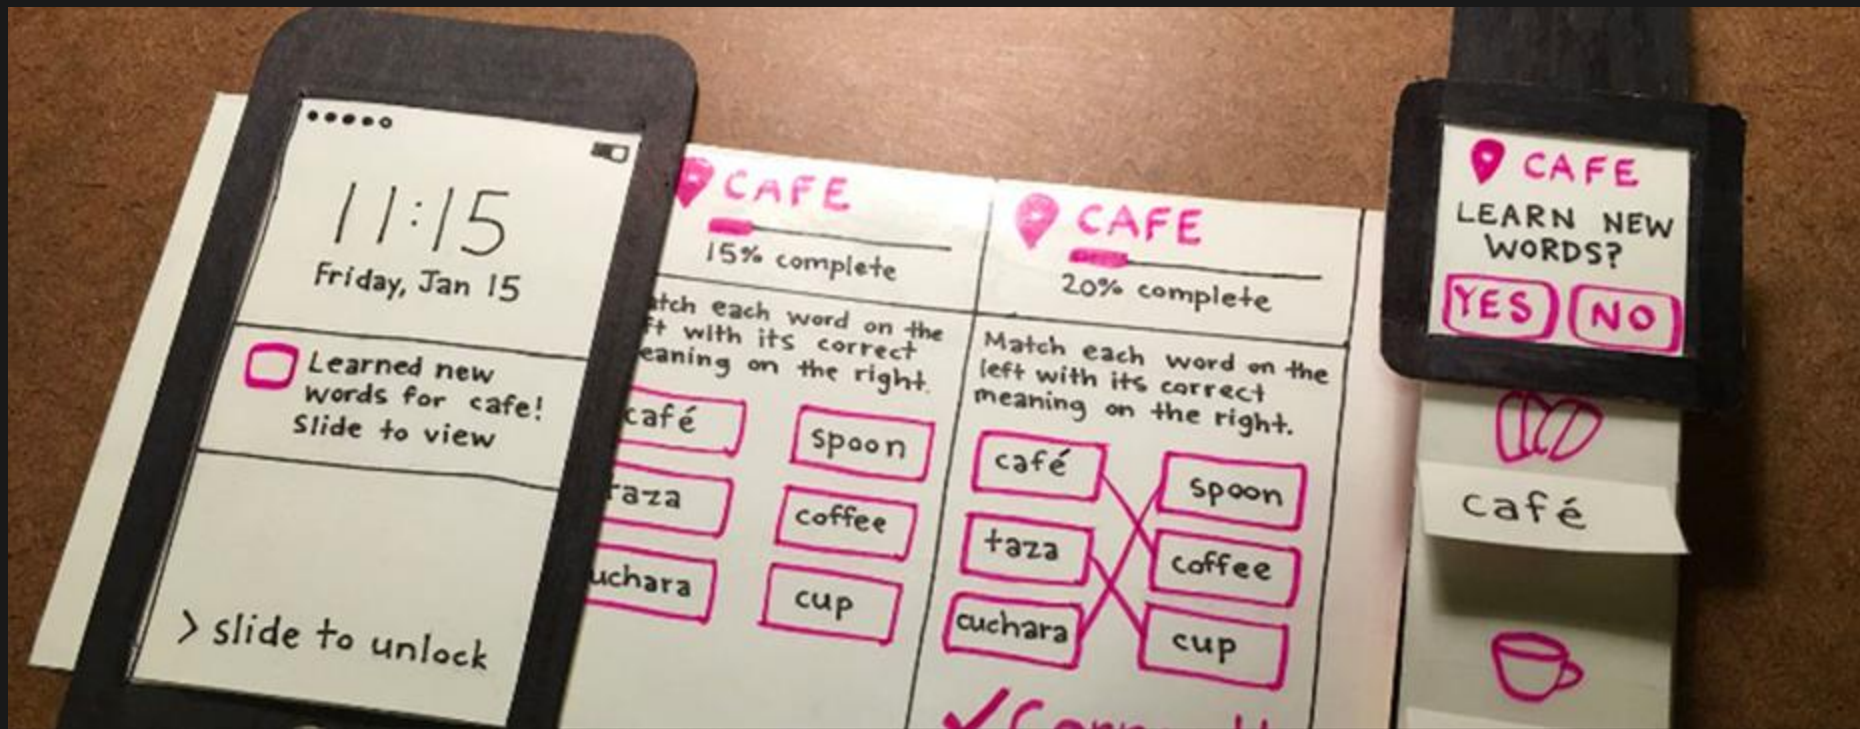 11:15
Friday, Jan 15
Learned new
words for cafe!
Slide to view
> slide to unlock
CAFE
15% complete
atch each word on the
ft with its correct
eaning on the right.
café
spoon
aza
coffee
uchara
cup
CAFE
20% complete
Match each word on the
left with its correct
meaning on the right.
café
spoon
taza
coffee
cuchara
cup
CAFE
LEARN NEW
WORDS?
YES NO
café